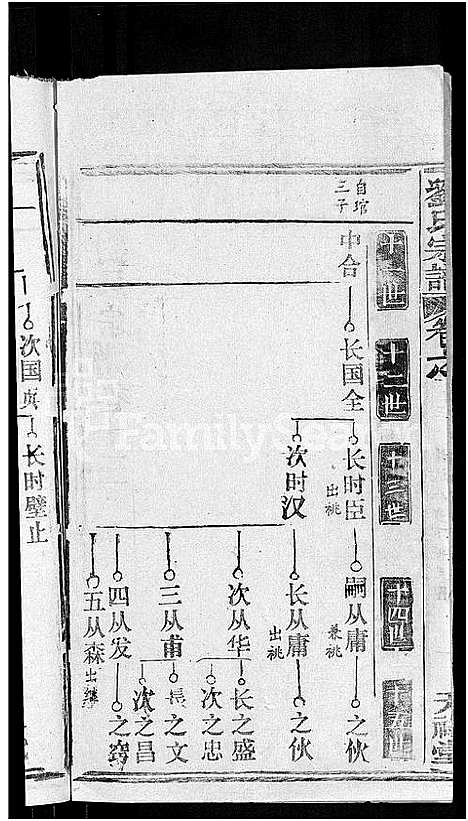 劉氏宗譜
卷
十一世
十二世
十三世
十四世
十五世
自琯
三子
中合
长国全
长时臣
出祧
次时汉
嗣从庸
兼祧
长从庸
出祧
次从华
三从甫
四从发
五从森
出继
之伙
之伙
长之盛
次之忠
长之文
次之昌
之窍
次国真
长时璧止
FamilySea